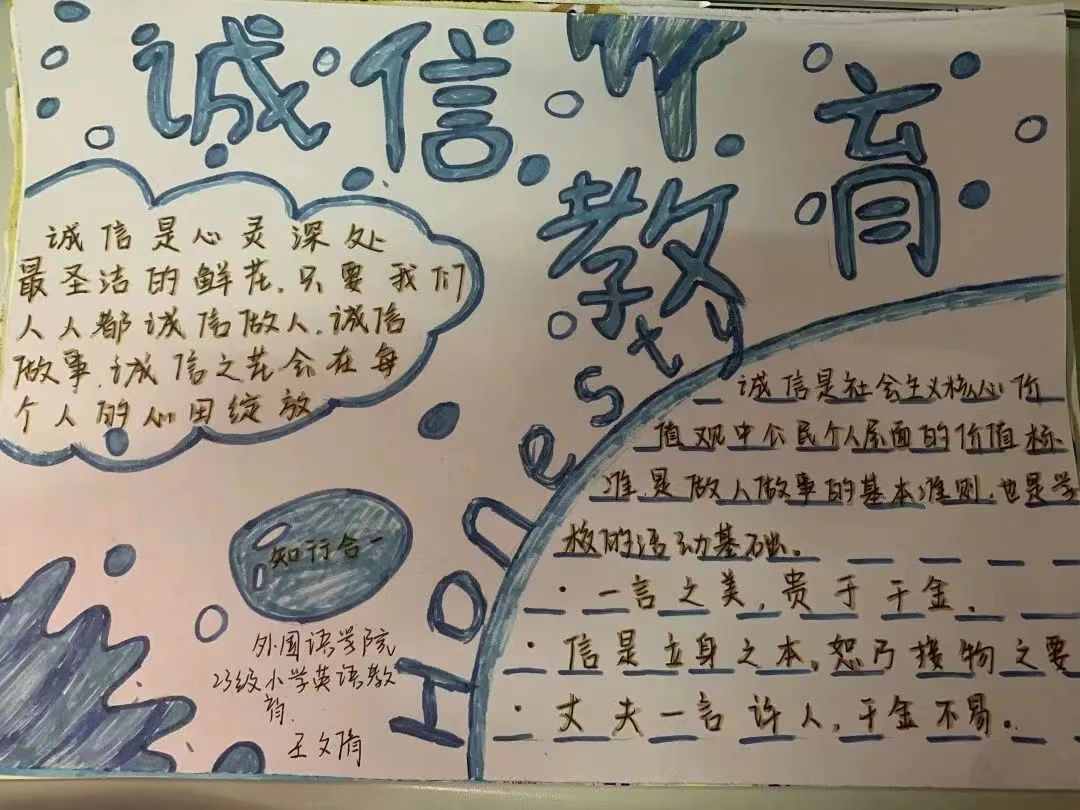 诚信教育
诚信是心灵深处
最圣洁的鲜花，只要我们
人人都诚信做人，诚信
做事，诚信之花会在每
个人的心田绽放
Honesty
诚信是社会主义核心价
值观中公民个人层面的价值标
准，是做人做事的基本准则，也是学
校的活动基础。
·一言之美，贵于千金。
·信是立身之本，恕乃接物之要
·丈夫一言许人，千金不易。
知行合一
外国语学院
23级小学英语教
育
王文倩